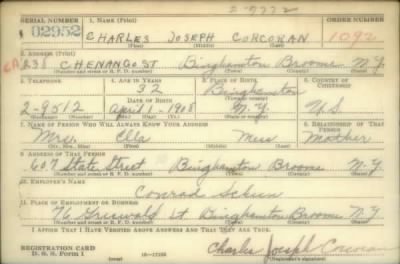 2-9772
SERIAL NUMBER 1. NAME (Print) ORDER NUMBER
02952 CHARLES JOSEPH CORCORAN 1092
(First) (Middle) (Last)
2. ADDRESS (Print)
238 CHENANGO ST Binghamton Broome N.Y.
(Number and street or R. F. D. number) (Town) (County) (State)
3. TELEPHONE 4. AGE IN YEARS 5. PLACE OF BIRTH 6. COUNTRY OF CITIZENSHIP
32 Binghamton
DATE OF BIRTH (Town or county)
2-9512 April-1-1908 N.Y. U.S
(Exchange) (Number) (Mo.) (Day) (Yr.) (State or country)
7. NAME OF PERSON WHO WILL ALWAYS KNOW YOUR ADDRESS 8. RELATIONSHIP OF THAT PERSON
Mrs. Ella Mother
(Mr., Mrs., Miss) (First) (Middle) (Last)
9. ADDRESS OF THAT PERSON
607 State Street Binghamton Broome N-Y.
(Number and street or R. F. D. number) (Town) (County) (State)
10. EMPLOYER'S NAME
Conrad
11. PLACE OF EMPLOYMENT OR BUSINESS
76 Griswold St Binghamton Broome N.Y.
(Number and street or R. F. D. number) (Town) (County) (State)
I AFFIRM THAT I HAVE VERIFIED ABOVE ANSWERS AND THAT THEY ARE TRUE.
REGISTRATION CARD
D. S. S. Form 1 (over) Charles Joseph Corcoran
(Registrant's signature)